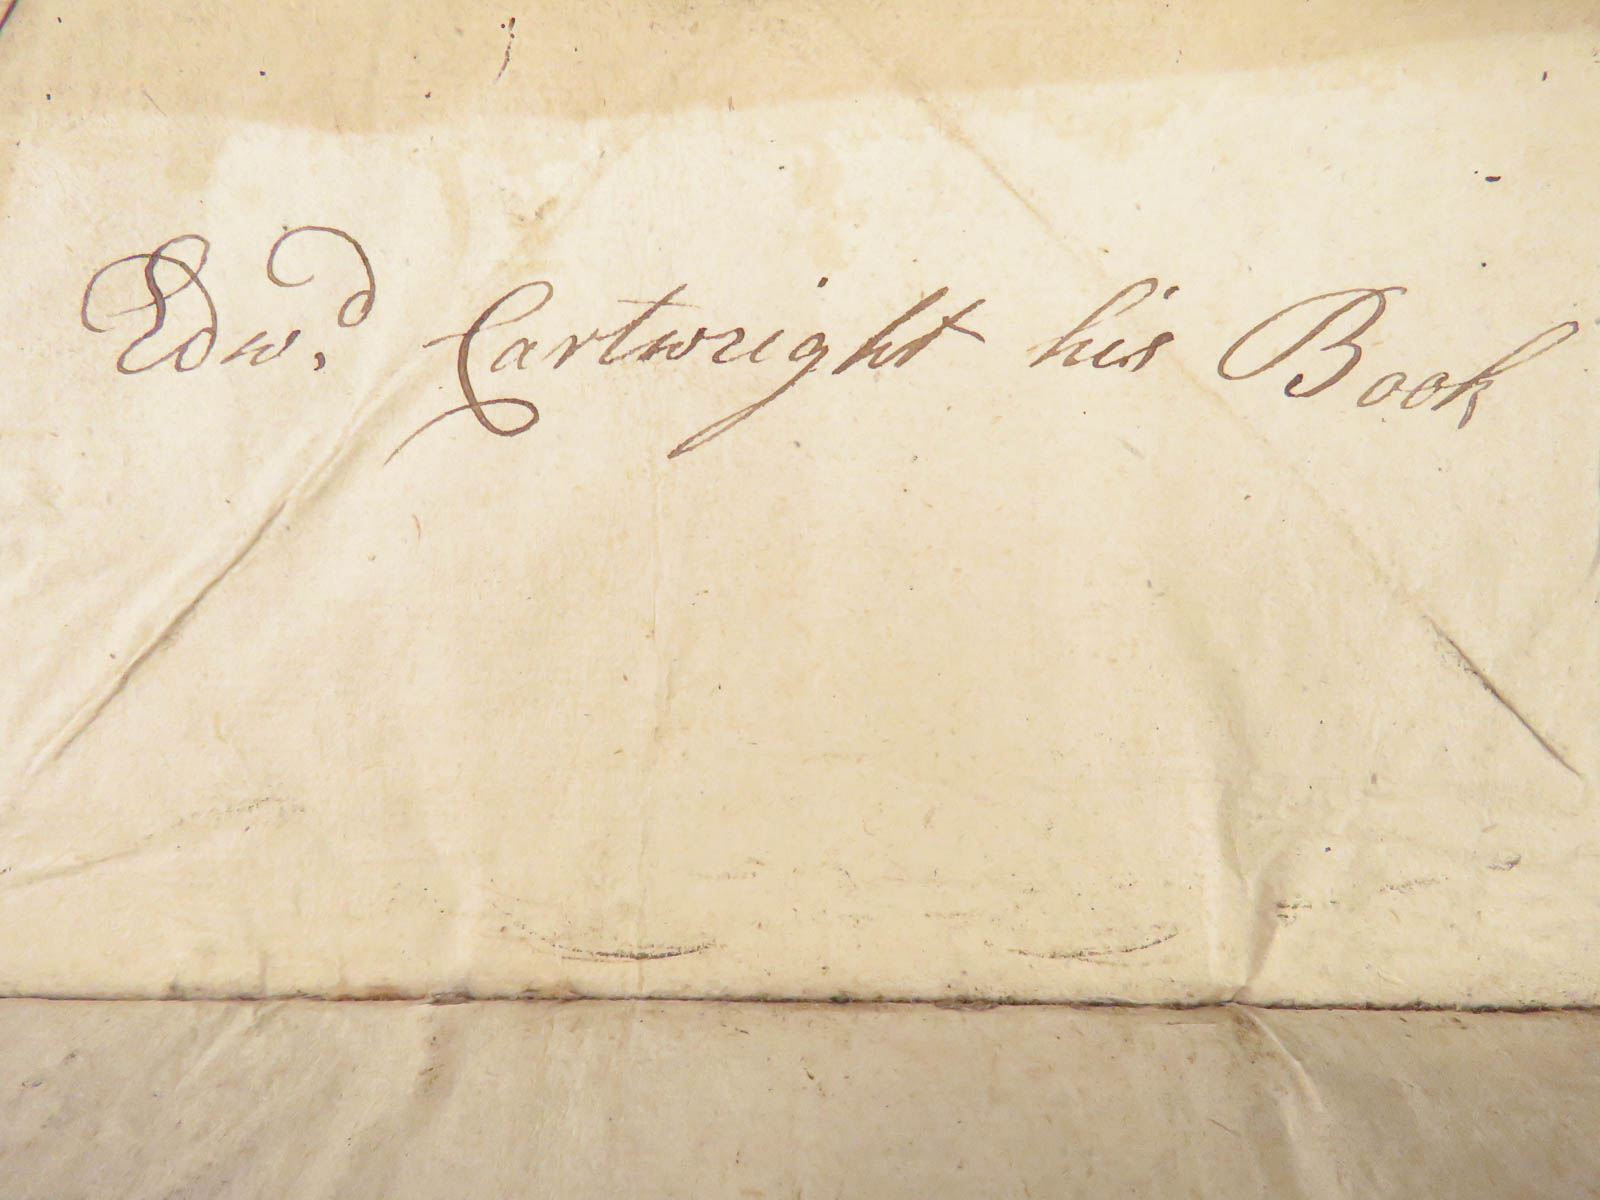 Edw.d Cartwright his Book